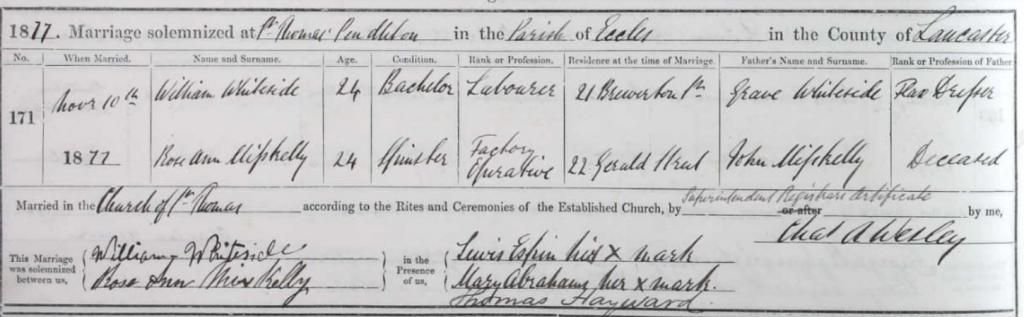 1877. Marriage solemnized at St. Thomas' Pendleton in the Parish of Eccles in the County of Lancaster
No. When Married. Name and Surname. Age. Condition. Rank or Profession. Residence at the time of Marriage. Father's Name and Surname. Rank or Profession of Father
171 Novr 10th William Whiteside 24 Bachelor Labourer 21 Brewerton St. Grave Whiteside Flax Dresser
1877 Rose Ann Misskelly 24 Spinster Factory Operative 22 Gerald Street John Misskelly Deceased
Married in the Church of St. Thomas according to the Rites and Ceremonies of the Established Church, by Superintendent Registrars Certificate or after by me,
Chas A Wesley
This Marriage was solemnized between us, William Whiteside in the Presence of us, Lewis his x mark
Rose Ann Miss Kelly Mary Abrahams her x mark.
Thomas Hayward.